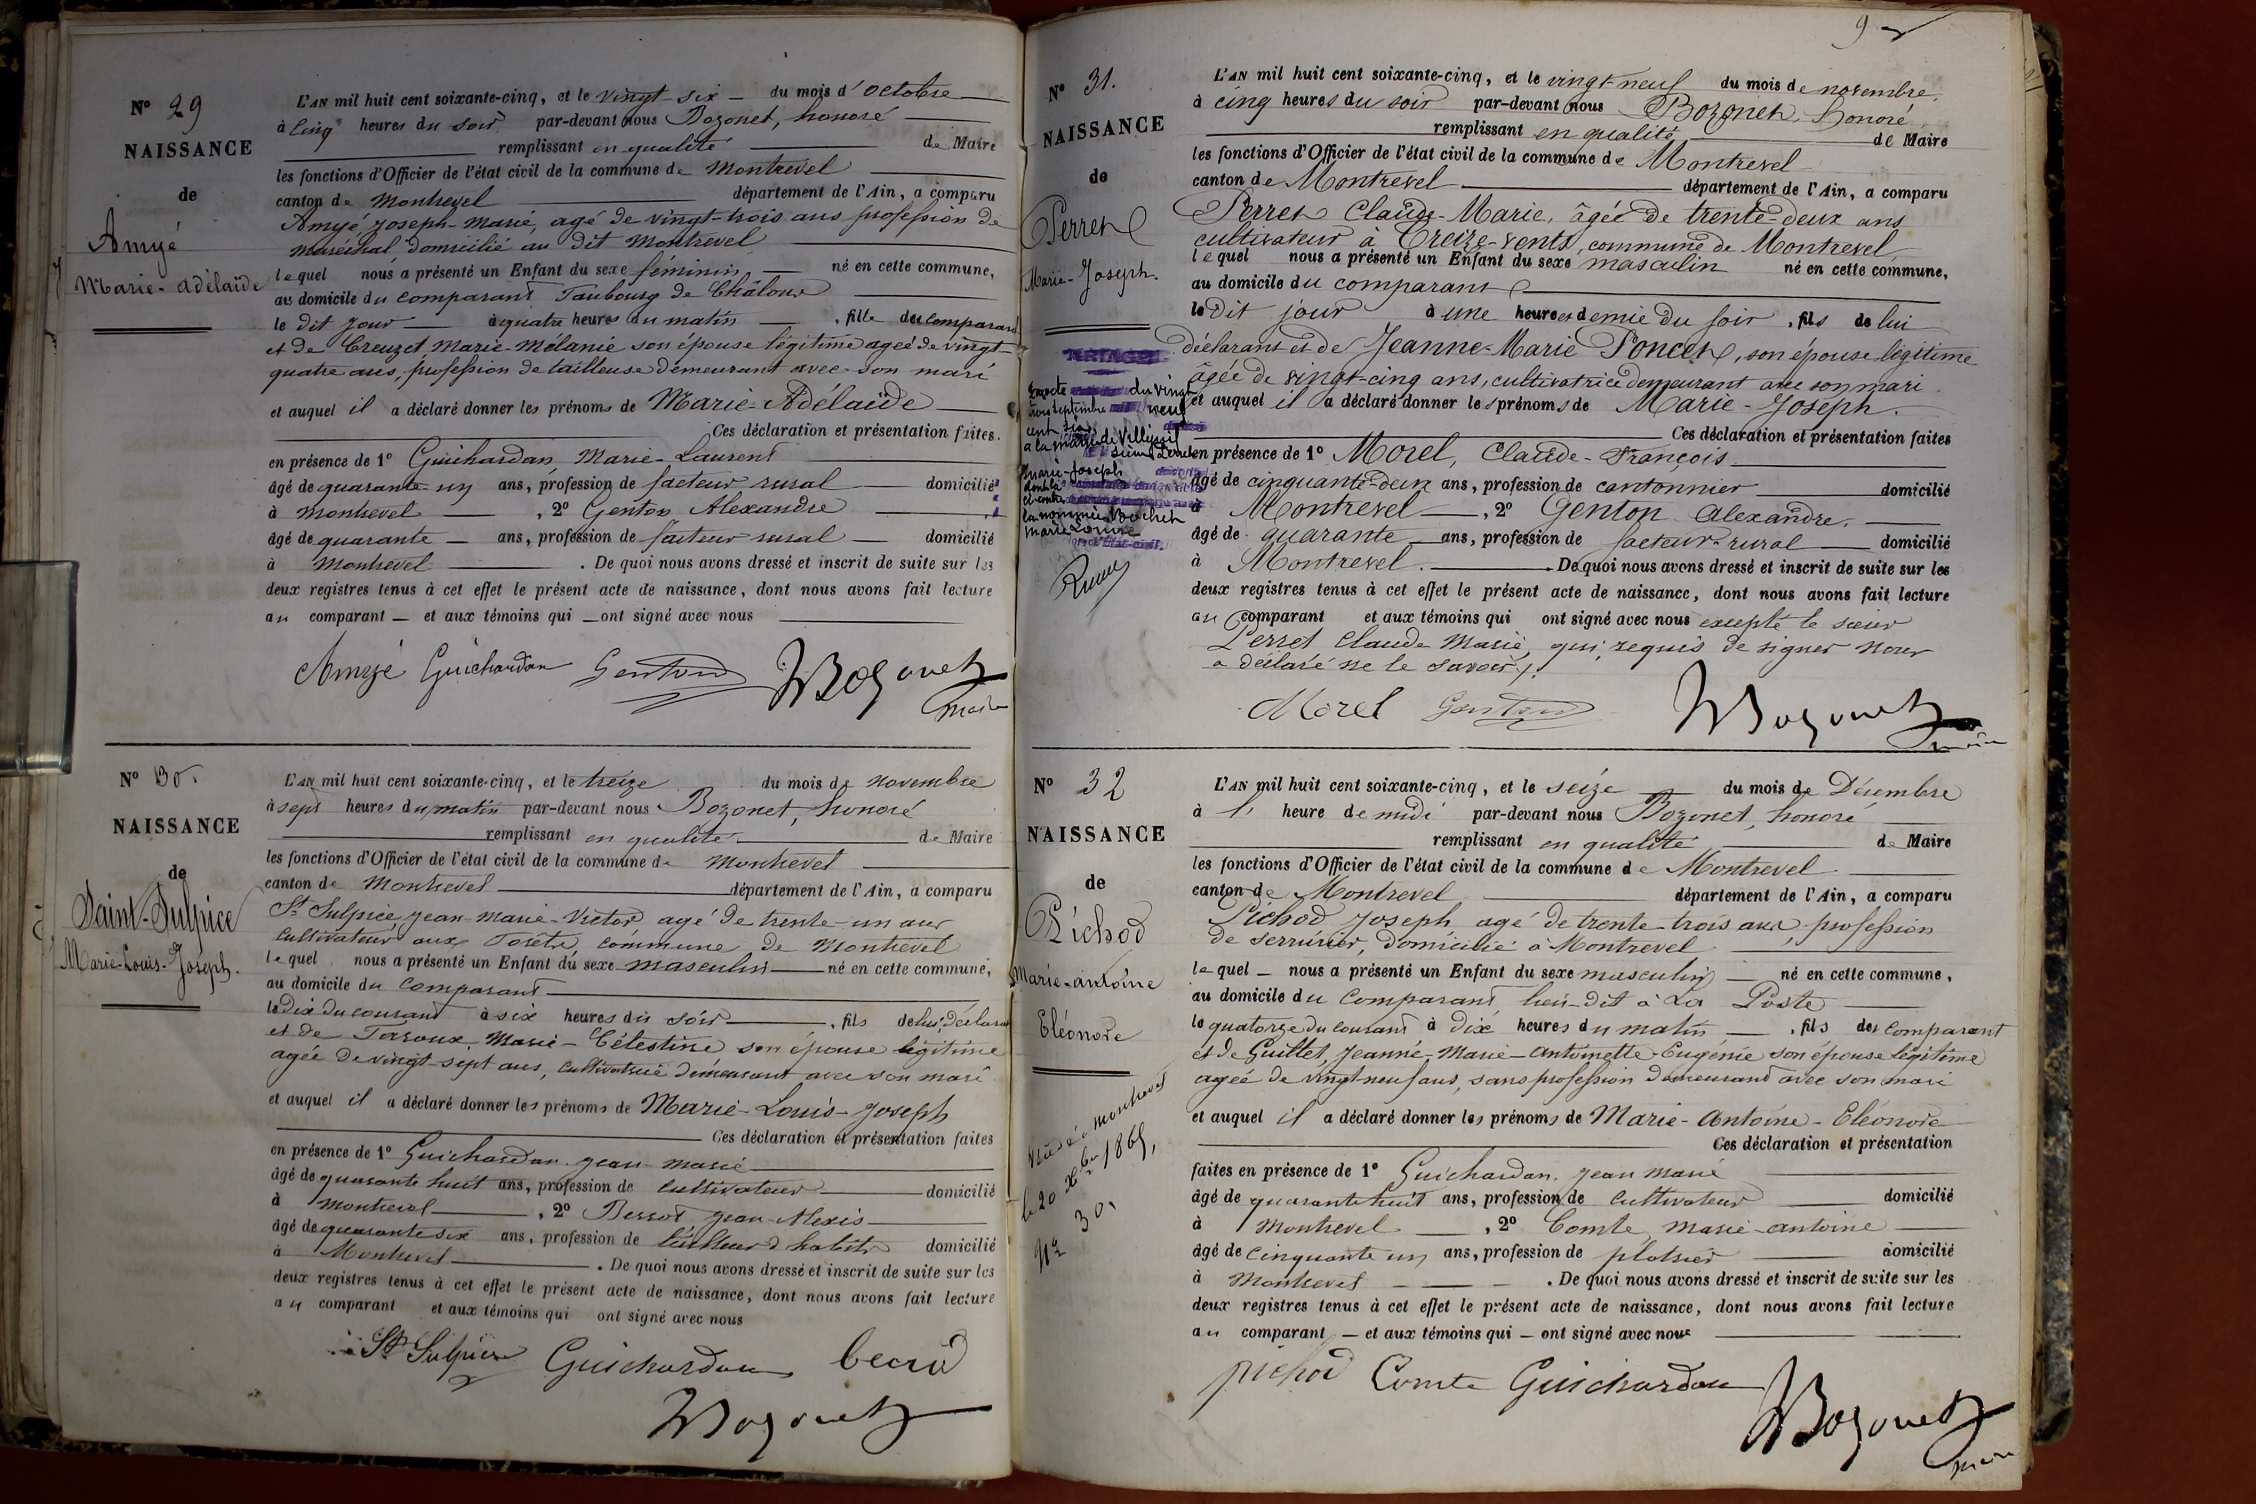 N° 29
NAISSANCE
de
Amyé
Marie-Adélaïde
L'AN mil huit cent soixante-cinq, et le vingt-six du mois d'octobre
à cinq heures du soir par-devant nous Bozonet, honoré
remplissant en qualité de Maire
les fonctions d'Officier de l'état civil de la commune de Montrevel
canton de Montrevel département de l'Ain, a comparu
Amyé, Joseph-Marie, agé de vingt-trois ans profession de
maréchal, domicilié au dit Montrevel
lequel nous a présenté un Enfant du sexe féminin né en cette commune,
au domicile du comparant Faubourg de Châlons
le dit jour à quatre heures du matin, fille du comparant
et de Creuzet Marie-Mélanie son épouse légitime agée de vingt-
quatre ans, profession de tailleuse demeurant avec son mari
et auquel il a déclaré donner les prénoms de Marie-Adélaïde
Ces déclaration et présentation faites
en présence de 1° Guichardan, Marie-Laurent
âgé de quarante-un ans, profession de facteur rural domicilié
à Montrevel, 2° Genton Alexandre
âgé de quarante ans, profession de facteur rural domicilié
à Montrevel. De quoi nous avons dressé et inscrit de suite sur les
deux registres tenus à cet effet le présent acte de naissance, dont nous avons fait lecture
au comparant et aux témoins qui ont signé avec nous
Amyé Guichardan Genton HBozonet
maire
N° 30.
NAISSANCE
de
Saint-Sulpice
Marie-Louis-Joseph.
L'AN mil huit cent soixante-cinq, et le treize du mois de novembre
à sept heures du matin par-devant nous Bozonet, honoré
remplissant en qualité de Maire
les fonctions d'Officier de l'état civil de la commune de Montrevel
canton de Montrevel département de l'Ain, a comparu
St Sulpice Jean-Marie-Victor agé de trente-un ans
cultivateur aux Forêts commune de Montrevel
lequel nous a présenté un Enfant du sexe masculin né en cette commune,
au domicile du comparant
le dix du courant à six heures du soir, fils de lui déclarant
et de Marie-Célestine son épouse légitime
agée de vingt-sept ans, cultivatrice demeurant avec son mari
et auquel il a déclaré donner les prénoms de Marie-Louis-Joseph
Ces déclaration et présentation faites
en présence de 1° Guichardan Jean Marie
âgé de quarante huit ans, profession de cultivateur domicilié
à Montrevel, 2° Jean Alexis
âgé de quarante six ans, profession de tailleur d'habits domicilié
à Montrevel. De quoi nous avons dressé et inscrit de suite sur les
deux registres tenus à cet effet le présent acte de naissance, dont nous avons fait lecture
au comparant et aux témoins qui ont signé avec nous
St Sulpice Guichardan
HBozonet
9
N° 31.
NAISSANCE
de
Perret
Marie-Joseph.
du vingt
trois septembre neuf
cent six
à la mairie de
sieur Perret
Marie-Joseph
la nommée Bochet
Marie Louise
L'AN mil huit cent soixante-cinq, et le vingt-neuf du mois de novembre,
à cinq heures du soir par-devant nous Bozonet, honoré
remplissant en qualité de Maire
les fonctions d'Officier de l'état civil de la commune de Montrevel
canton de Montrevel département de l'Ain, a comparu
Perret Claude-Marie, âgée de trente-deux ans
cultivateur à Treize-vents, commune de Montrevel
lequel nous a présenté un Enfant du sexe masculin né en cette commune,
au domicile du comparant
le Dit jour à une heure et demie du soir, fils de lui
déclarant et de Jeanne-Marie Poncet, son épouse légitime
âgée de vingt-cinq ans, cultivatrice demeurant avec son mari
et auquel il a déclaré donner les prénoms de Marie-Joseph.
Ces déclaration et présentation faites
en présence de 1° Morel, Claude-François
âgé de cinquante-deux ans, profession de cantonnier domicilié
à Montrevel, 2° Genton Alexandre,
âgé de quarante ans, profession de facteur-rural domicilié
à Montrevel. De quoi nous avons dressé et inscrit de suite sur les
deux registres tenus à cet effet le présent acte de naissance, dont nous avons fait lecture
au comparant et aux témoins qui ont signé avec nous excepté le sieur
Perret Claude Marie, qui, requis de signer nous
a déclaré ne le savoir.
Morel Genton HBozonet
maire
N° 32
NAISSANCE
de
Pichod
Marie-antoine
Eléonore
Montrevel
le 20 Xbre 1865,
30,
L'AN mil huit cent soixante-cinq, et le seize du mois de Décembre
à l' heure de midi par-devant nous Bozonet, honoré
remplissant en qualité de Maire
les fonctions d'Officier de l'état civil de la commune de Montrevel
canton de Montrevel département de l'Ain, a comparu
Pichod, Joseph agé de trente-trois ans, profession
de serrurier, domicilié à Montrevel
lequel nous a présenté un Enfant du sexe masculin né en cette commune,
au domicile du comparant lieu-dit à La Poste
le quatorze du courant à dix heures du matin, fils du comparant
et de Guillet, Jeanne-Marie-Antoinette-Eugénie son épouse légitime
agée de vingt-neuf ans, sans profession demeurant avec son mari
et auquel il a déclaré donner les prénoms de Marie-Antoine-Eléonore
Ces déclaration et présentation
faites en présence de 1° Guichardan, Jean Marie
âgé de quarante huit ans, profession de cultivateur domicilié
à Montrevel, 2° Comte, Marie-Antoine
âgé de cinquante un ans, profession de plâtrier domicilié
à Montrevel. De quoi nous avons dressé et inscrit de suite sur les
deux registres tenus à cet effet le présent acte de naissance, dont nous avons fait lecture
au comparant et aux témoins qui ont signé avec nous
pichod Comte Guichardan
HBozonet
maire